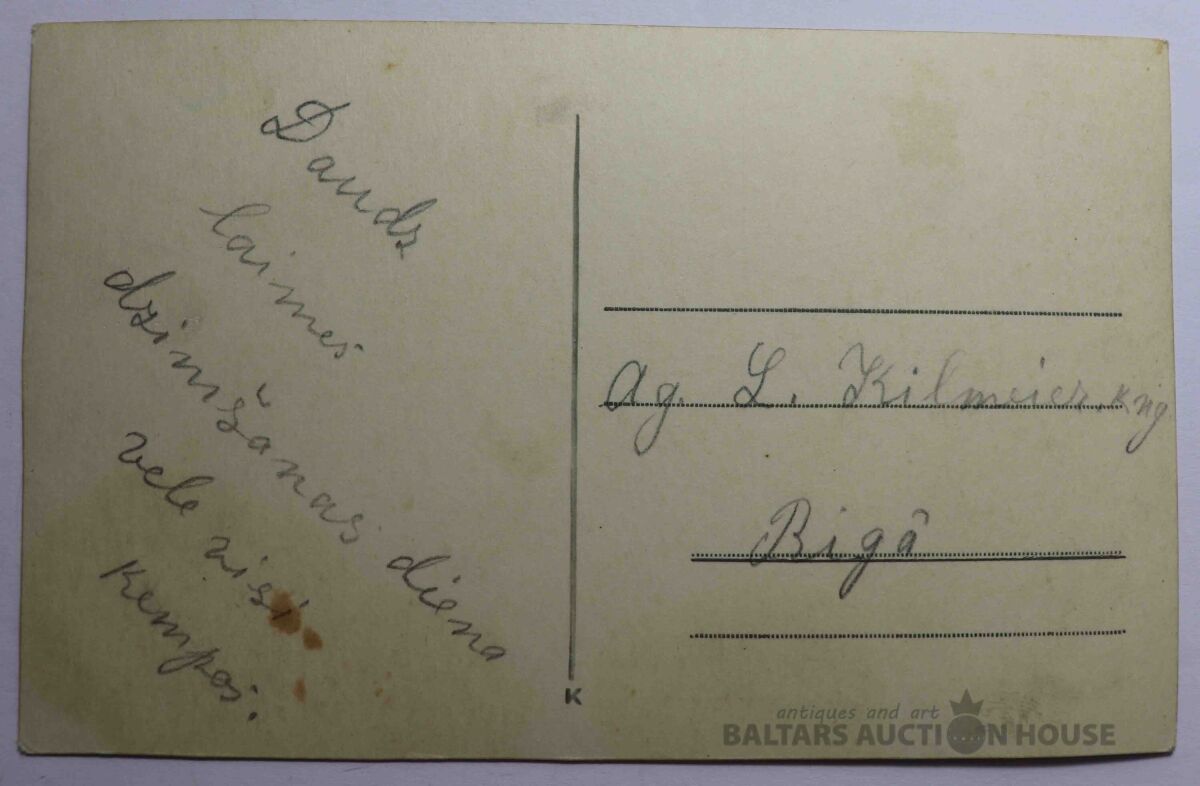 Daudz
laimes
dzimšanas diena
vele visi
Kempos.
Ag. L. Kilmeier. kng
Rigâ
K
antiques and art
BALTARS AUCTION HOUSE